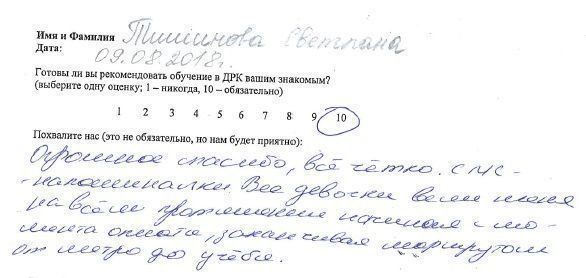 Имя и Фамилия Тишинова Светлана
Дата: 09.08.2018г.
Готовы ли вы рекомендовать обучение в ДРК вашим знакомым?
(выберите одну оценку; 1 – никогда, 10 – обязательно)
1 2 3 4 5 6 7 8 9 10
Похвалите нас (это не обязательно, но нам будет приятно):
Огромное спасибо, всё чётко. СМС-
-напоминалки. Все девочки вели меня
на всём протяжении начиная с мо-
мента оплаты, заканчивая маршрутом
от метро до учёбы.